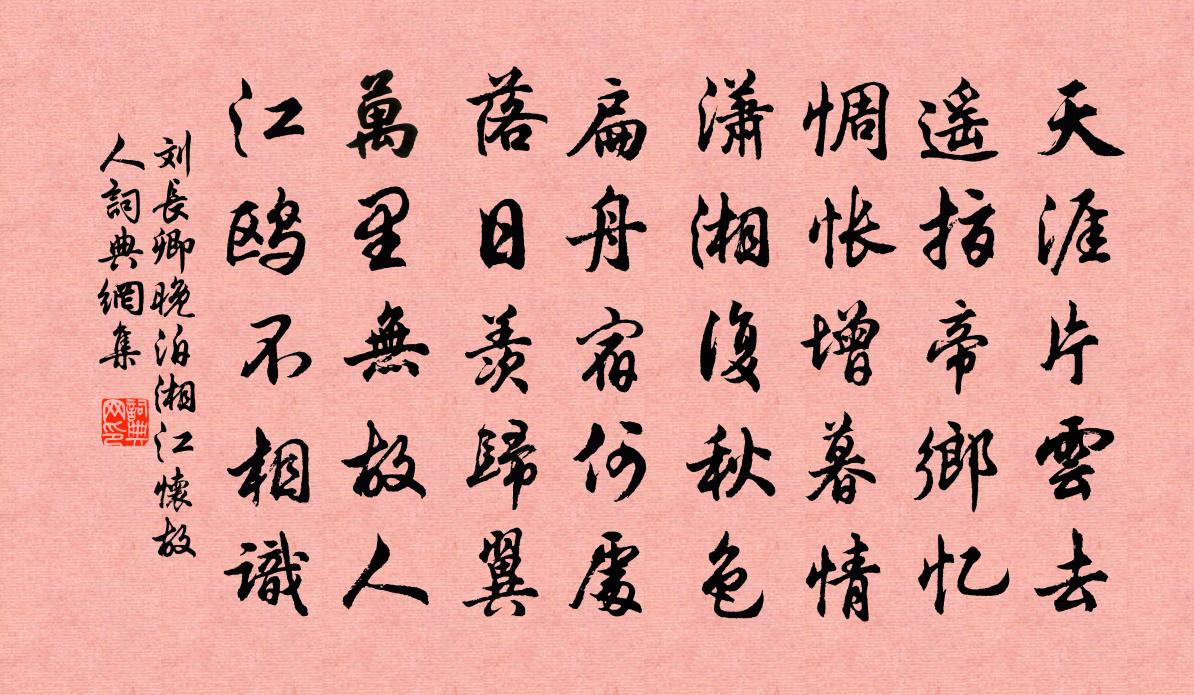 天涯片雲去
遥指帝鄉忆
惆怅增暮情
瀟湘復秋色
扁舟宿何處
落日羨歸翼
萬里無故人
江鸥不相識
刘長卿晚泊湘江懷故
人詞典網集
詞典
网印